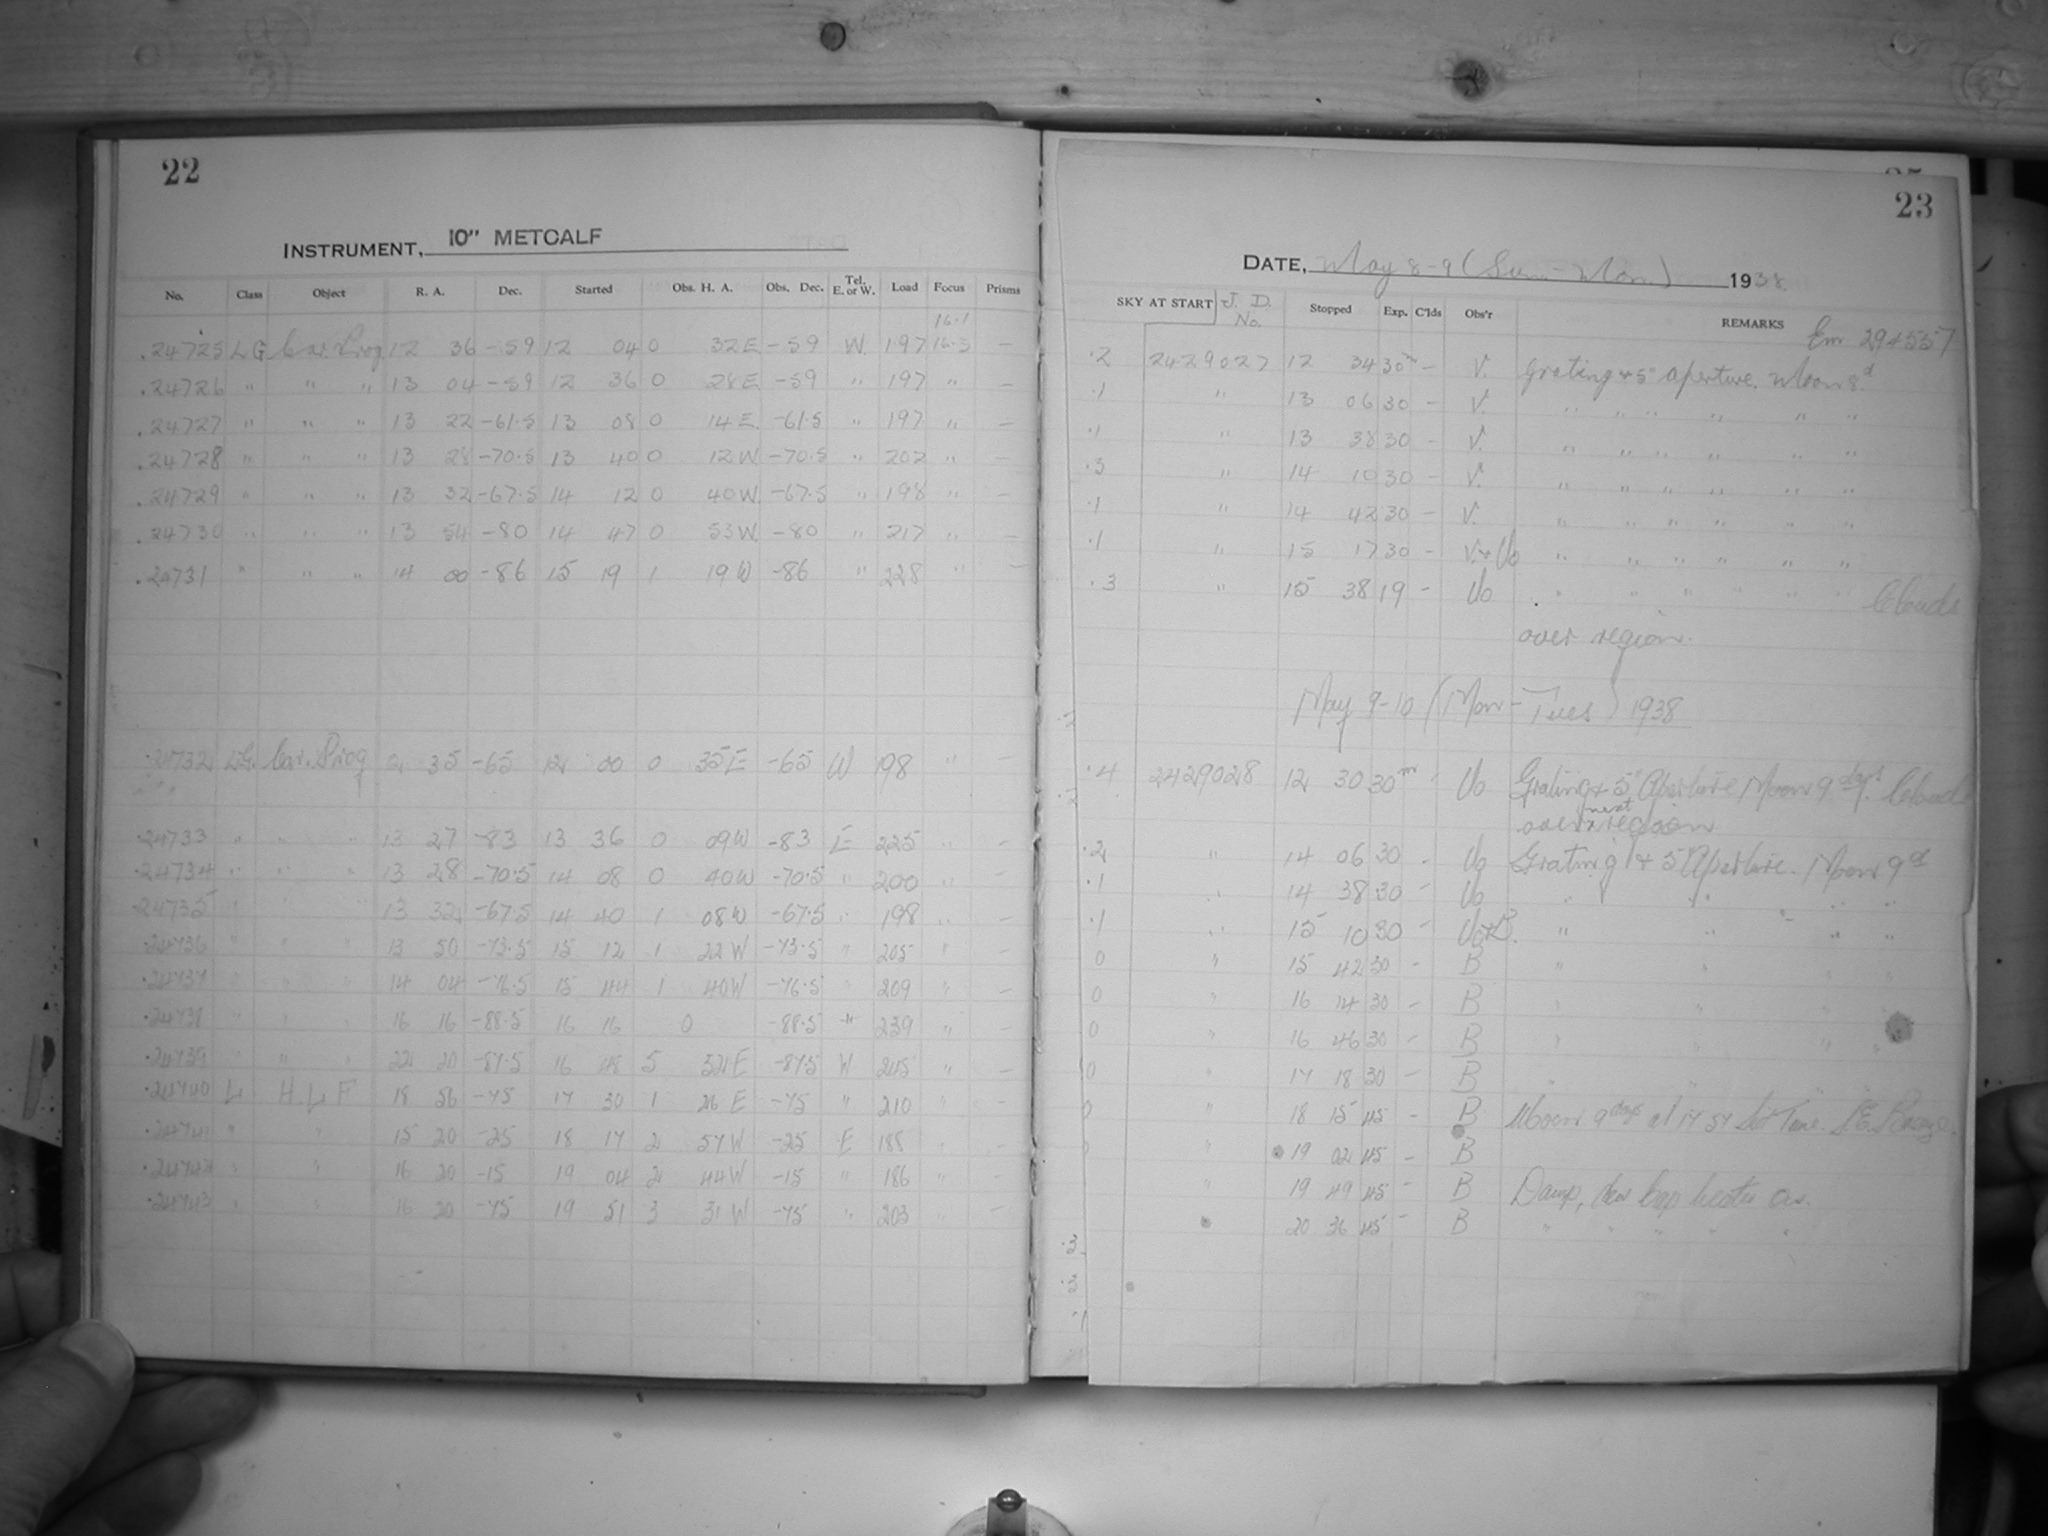 22
INSTRUMENT, 10" METCALF
No. Class Object R. A. Dec. Started Obs. H. A. Obs. Dec. Tel. E. or W. Load Focus Prisms
16.1
.24725 L G Car. Prog 12 36 -59 12 04 0 32E -59 W. 197 16.3 —
.24726 " " " 13 04 -59 12 36 0 28E -59 " 197 " —
.24727 " " " 13 22 -61.5 13 08 0 14E. -61.5 " 197 " —
.24728 " " " 13 28 -70.5 13 40 0 12W -70.5 " 202 " —
.24729 " " " 13 32 -67.5 14 12 0 40W. -67.5 " 198 " —
.24730 " " " 13 54 -80 14 47 0 53W. -80 " 217 " —
.24731 " " " 14 00 -86 15 19 1 19W -86 " 228 " —
.24732 LG. Car. Prog 12 35 -65 12 00 0 35E -65 W 198 " —
.24733 " " " 13 27 -83 13 36 0 09W -83 E 225 " —
.24734 " " " 13 28 -70.5 14 08 0 40W -70.5 " 200 " —
.24735 " " " 13 32 -67.5 14 40 1 08W -67.5 " 198 " —
.24736 " " " 13 50 -73.5 15 12 1 22W -73.5 " 205 " —
.24737 " " " 14 04 -76.5 15 44 1 40W -76.5 " 209 " —
.24738 " " " 16 16 -88.5 16 16 0 -88.5 " 239 " —
.24739 " " " 22 20 -87.5 16 48 5 32E -87.5 W 245 " —
.24740 L H.L.F 18 56 -75 17 30 1 26E -75 " 210 " —
.24741 " " 15 20 -25 18 17 2 57W -25 E 185 " —
.24742 " " 16 20 -15 19 04 2 44W -15 " 186 " —
.24743 " " 16 20 -75 19 51 3 31W -75 " 203 " —
23
DATE, May 8-9 (Sun-Mon) 1938.
SKY AT START J. D. No. Stopped Exp. C'lds Obs'r REMARKS
Em 29+557
.2 2429027 12 34 30m — V. Grating & 5" aperture. Moon 8d
.1 " 13 06 30 — V. " " " " " "
.1 " 13 38 30 — V. " " " " " "
.3 " 14 10 30 — V. " " " " " "
.1 " 14 42 30 — V. " " " " " "
.1 " 15 17 30 — V.+Uo " " " " " "
.3 " 15 38 19 — Uo " " " " " " Clouds
over region.
May 9-10 (Mon-Tues) 1938
.4 2429028 12 30 30m — Uo Grating & 5" Aperture Moon 9 days. Cloud
over next region
.2 " 14 06 30 — Uo Grating & 5" Aperture. Moon 9d
.1 " 14 38 30 — Uo " " " " "
.1 " 15 10 30 — Uo+B. " " " "
0 " 15 42 30 — B " " " "
0 " 16 14 30 — B " " " "
0 " 16 46 30 — B " " " "
0 " 17 18 30 — B " " " "
0 " 18 15 45 — B Moon 9 days at 17 57 Sid Time. S.E. Breeze.
" 19 02 45 — B
" 19 49 45 — B Damp, dew cap heater on.
20 36 45 — B " " " " "
.3
.3
.1